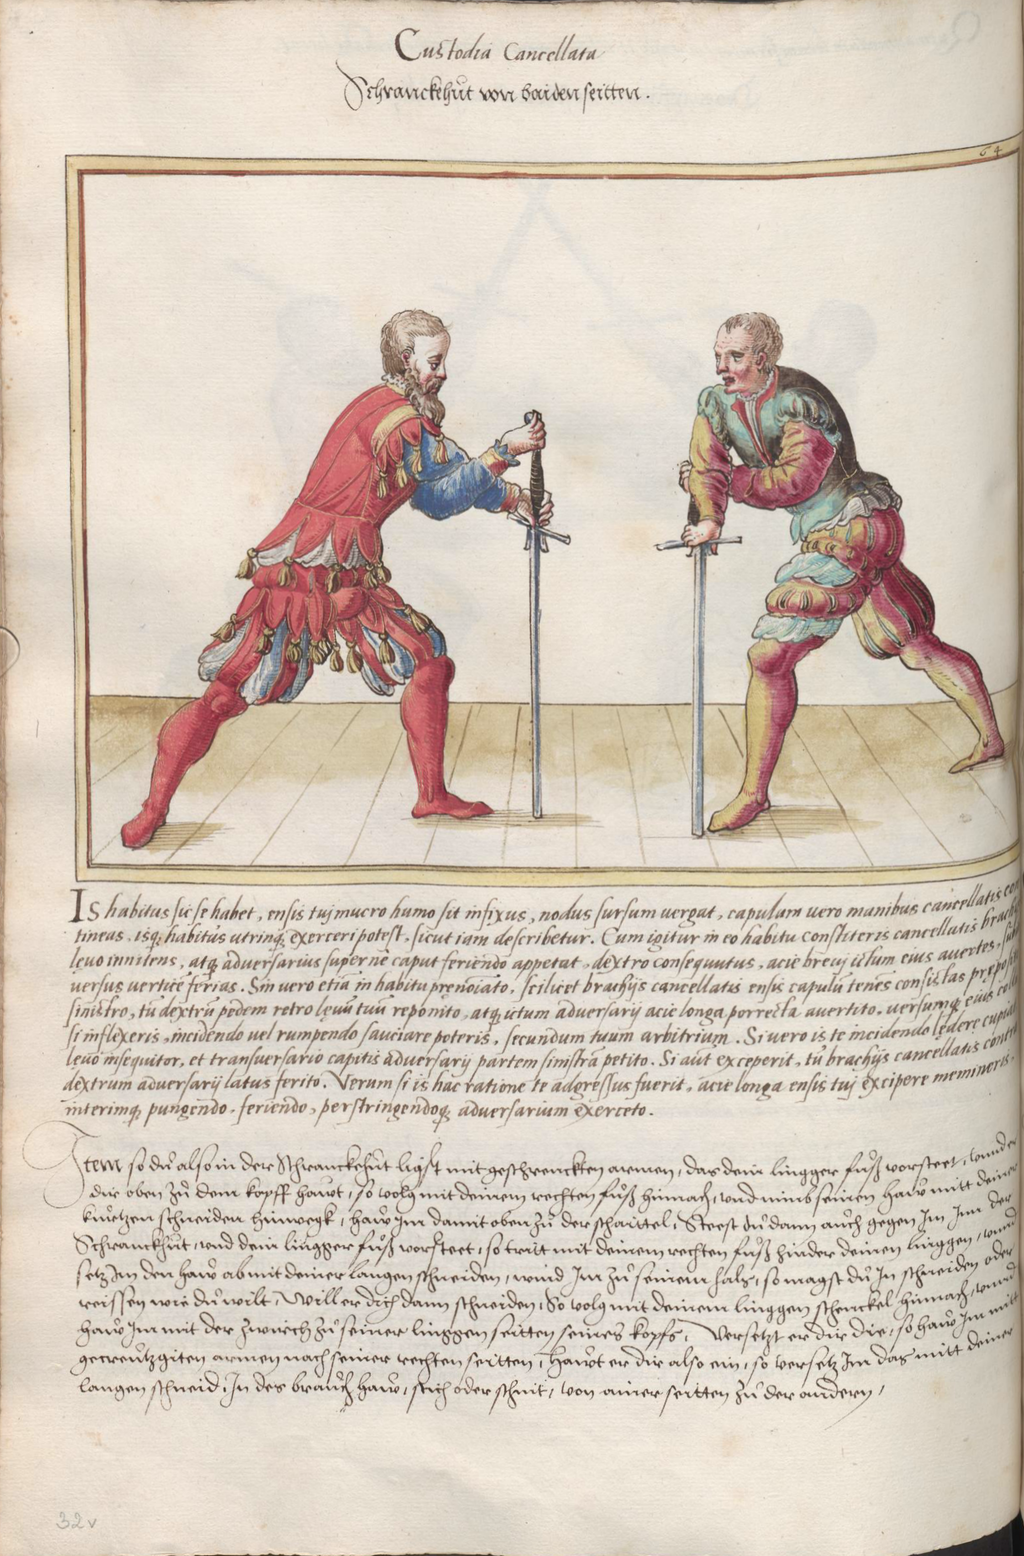 Custodia Cancellata
Schranckehut von baiden seitten.
64
Is habitus sic se habet, ensis tuj mucro humo sit infixus, nodus sursum vergat, capulum vero manibus cancellatis con
tineas, isq; habitus utrinq; exerceri potest, sicut iam describetur. Cum igitur in eo habitu constiteris cancellatis brachijs
levo innitens, atq; adversarius superne caput feriendo appetat, dextro consequutus, acie brevi ictum eius avertes,
versus verticē ferias. Sin vero etiā in habitu prenoiato, scilicet brachijs cancellatis ensis capulū tenēs consistas preposito
sinistro, tū dextrū pedem retro levū tuū reponito, atq; ictum adversarij acie longa porrecta avertito, versumq; eius
si inflexeris, incidendo vel rumpendo sauciare poteris, secundum tuum arbitrium. Si vero is te incidendo ledere
levo insequitor, et transversario capitis adversarij partem sinistrā petito. Si aūt exceperit, tū brachijs cancellatis
dextrum adversarij latus ferito. Verum si is hac ratione te adgressus fuerit, acie longa ensis tuj excipere memineris,
interimq; pungendo, feriendo, perstringendoq; adversarium exerceto.
Item so du also in der Schranckehut ligst mit geschrenckten armen, das dein lingger fuß vorsteet, unnd er
dir oben zu dem kopff hawt, so volg mit deinem rechten fuß hinnach, und nimb seinen haw mitt deiner
kurtzen schneiden hinwegk, haw Im damit oben zu der schaittel, Steest du dann auch gegen Im Inn der
Schranckhut, und dein lingger fuß vorsteet, so tritt mit deinem rechten fuß hinder deinen linggen, unnd
setz Im den haw ab mit deiner langen schneiden, wind Im zu seinem hals, so magst du In schneiden oder
reissen wie du wilt, Will er dich dann schneiden, So volg mit deinem linggen schenckel hinnach, unnd
haw Im mit der zwirch zu seiner linggen seitten seines kopfs, Versetzt er dir die, so haw Im mitt
gecreutzgiten armen nach seiner rechten seitten, hawt er dir also ein, so versetz Im das mitt deiner
langen schneid, In des brauch haw, stich oder schnit, von ainer seitten zu der andern,
32 v